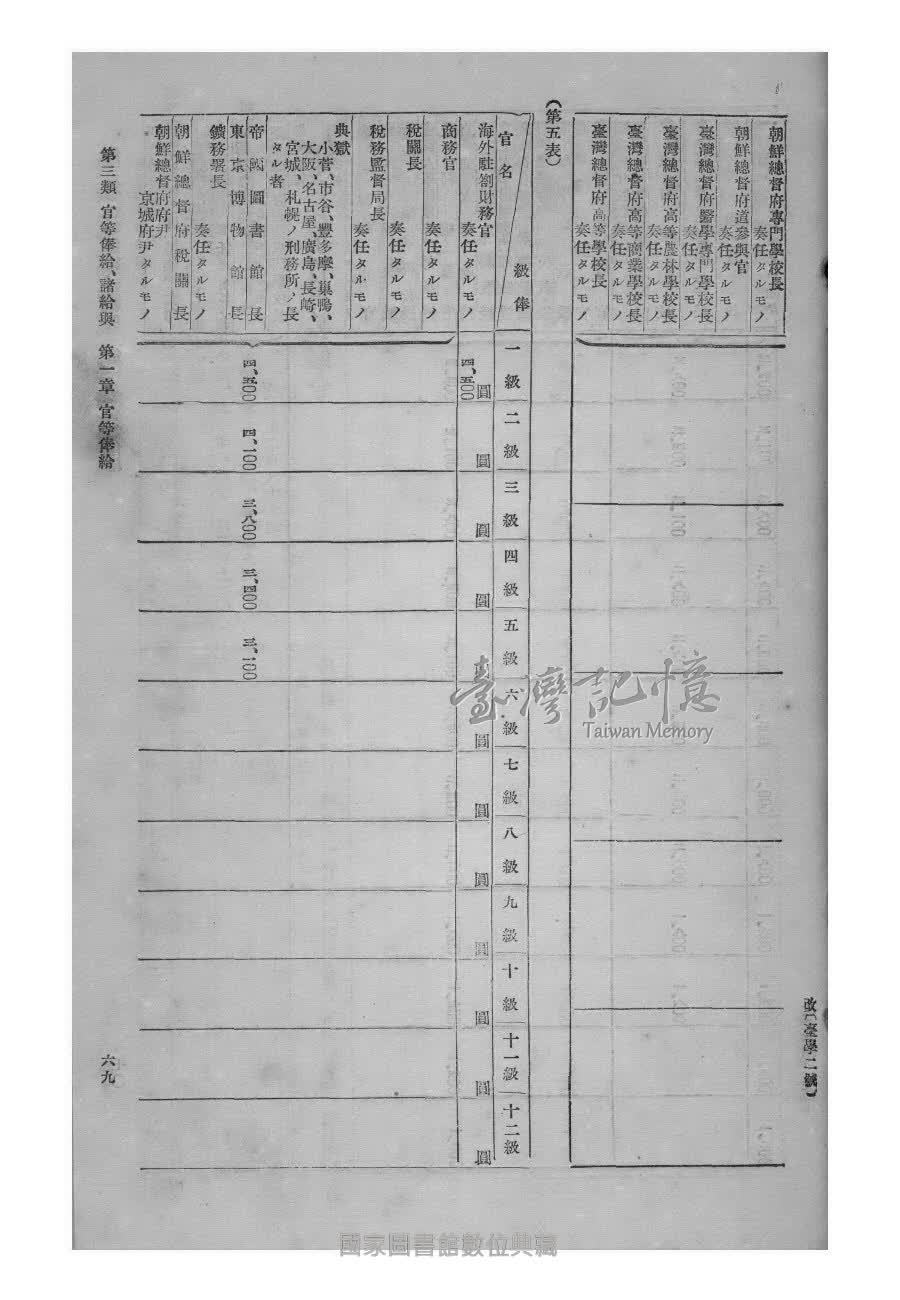 改〔臺學二號〕
朝鮮總督府專門學校長
奏任タルモノ
朝鮮總督府道參與官
奏任タルモノ
臺灣總督府醫學專門學校長
奏任タルモノ
臺灣總督府高等農林學校長
奏任タルモノ
臺灣總督府高等商業學校長
奏任タルモノ
臺灣總督府高等學校長
奏任タルモノ
(第五表)
官名
級俸
一級
二級
三級
四級
五級
六級
七級
八級
九級
十級
十一級
十二級
海外駐劄財務官
奏任タルモノ
四、五00圓
圓
圓
圓
圓
圓
圓
圓
圓
圓
圓
圓
商務官
奏任タルモノ
稅關長
奏任タルモノ
稅務監督局長
奏任タルモノ
典獄
小菅、市谷、豐多摩、巢鴨、
大阪、名古屋、廣島、長崎、
宮城、札幌ノ刑務所ノ長
タル者
帝國圖書館長
東京博物館長
鑛務署長
奏任タルモノ
朝鮮總督府稅關長
朝鮮總督府府尹
京城府尹タルモノ
四、五00
四、一00
三、八00
三、四00
三、一00
第三類 官等俸給、諸給與 第一章 官等俸給
六九
臺灣記憶
Taiwan Memory
國家圖書館數位典藏